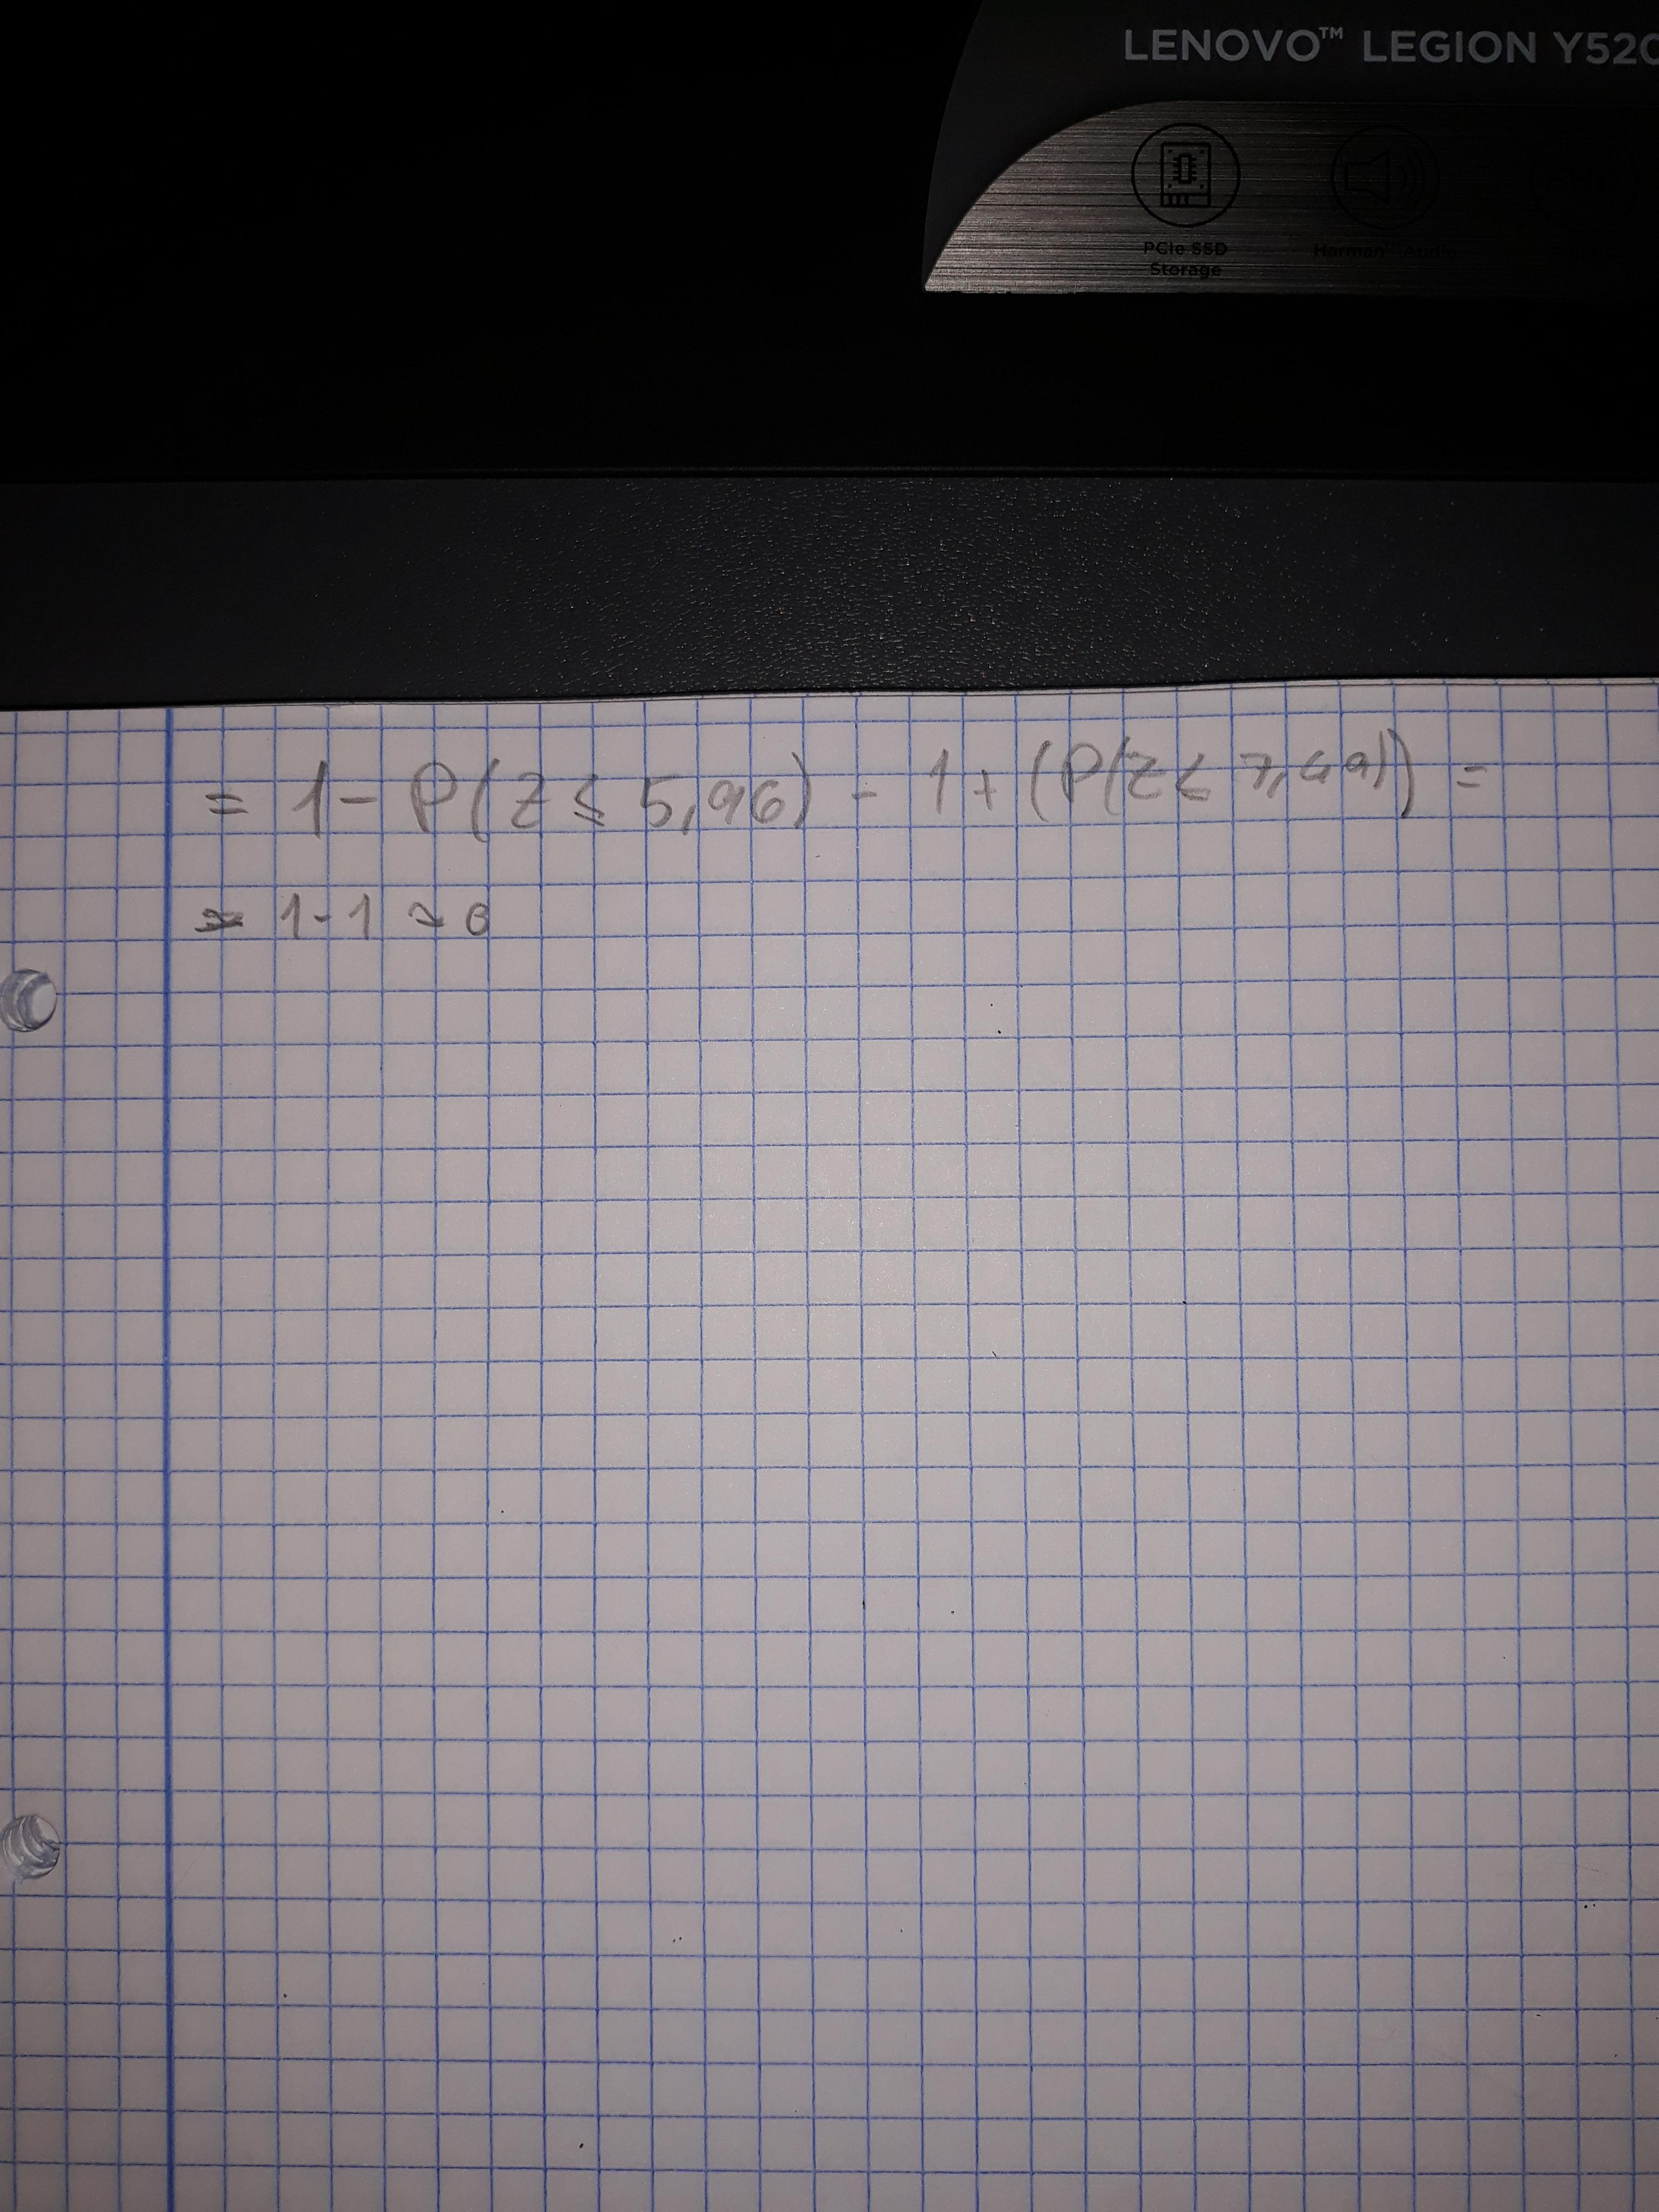 LENOVO™ LEGION Y520
PCIe SSD
Storage
Harman™ Audio
= 1 - P(Z ≤ 5,96) - 1 + (P(Z ≤ 7,49)) =
≈ 1-1 ≈ 0